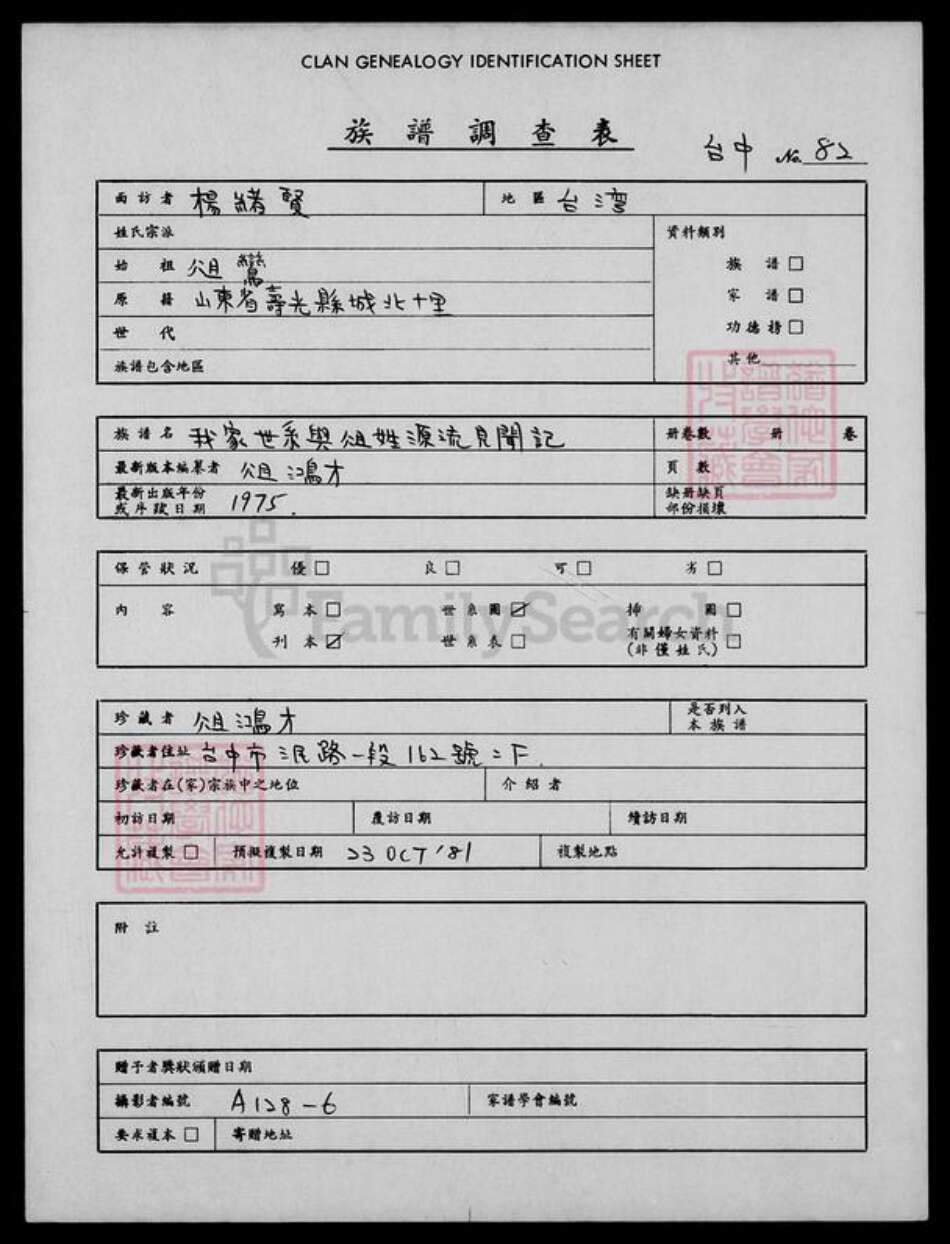 CLAN GENEALOGY IDENTIFICATION SHEET
族譜調查表
台中 No. 82
面訪者 楊緒賢 地區 台灣
姓氏宗派 資料類別
始祖 俎鸞 族譜□
原籍 山東省壽光縣城北十里 家譜□
世代 功德榜□
族譜包含地區 其他
族譜名 我家世系與俎姓源流見聞記 册卷數 册 卷
最新版本編纂者 俎鴻才 頁數
最新出版年份或序跋日期 1975. 缺册缺頁部份損壞
保管狀況 優□ 良□ 可□ 劣□
內容 寫本□ 世系圖☑ 插圖□
刊本☑ 世系表□ 有關婦女資料(非僅姓氏)□
FamilySearch
珍藏者 俎鴻才 是否列入本族譜
珍藏者住址 台中市三民路一段162號二F.
珍藏者在(家)宗族中之地位 介紹者
初訪日期 覆訪日期 續訪日期
允許複製□ 預擬複製日期 23 OCT '81 複製地點
附註
贈予者獎狀頒贈日期
攝影者編號 A128-6 家譜學會編號
要求複本□ 寄贈地址